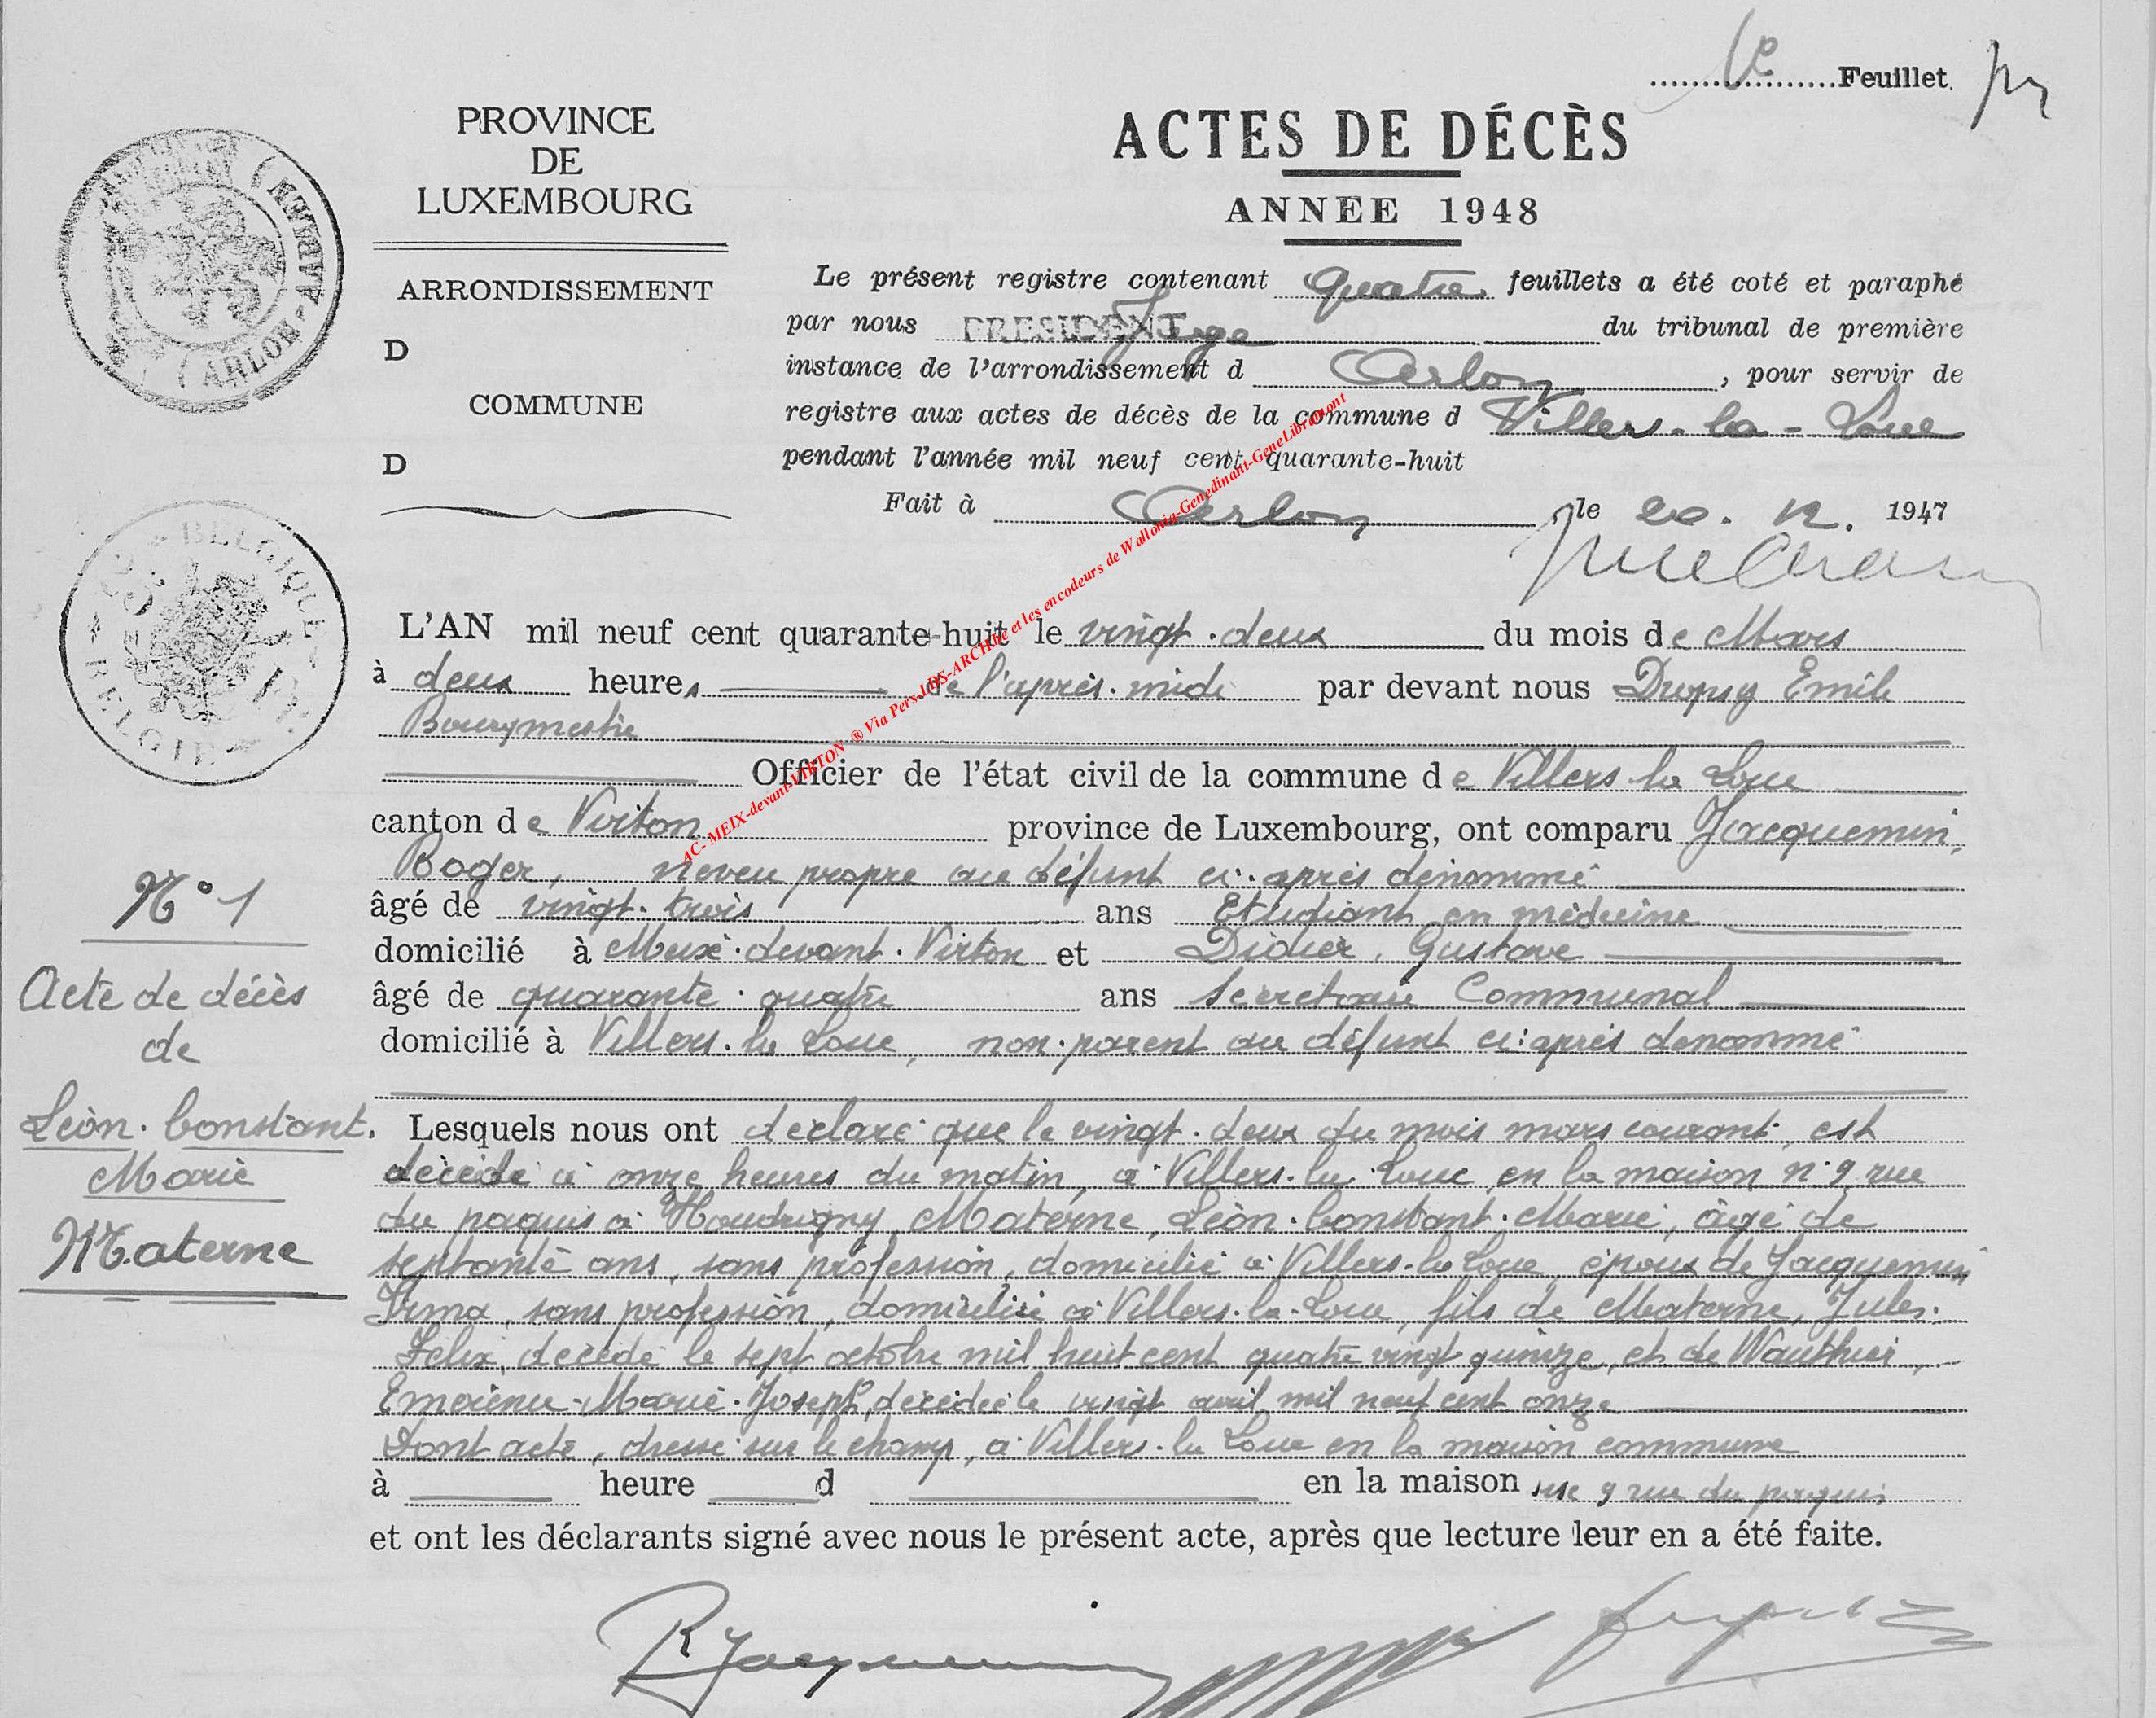 1e Feuillet.
PROVINCE
DE
LUXEMBOURG
ARRONDISSEMENT
D
COMMUNE
D
ARLON
BELGIQUE
BELGIE
ACTES DE DÉCÈS
ANNEE 1948
Le présent registre contenant quatre feuillets a été coté et paraphé
par nous PRESIDENT Juge du tribunal de première
instance de l'arrondissement d Arlon, pour servir de
registre aux actes de décès de la commune d Villers-la-Loue
pendant l'année mil neuf cent quarante-huit
Fait à Arlon le 20. 12. 1947
L'AN mil neuf cent quarante-huit le vingt-deux du mois de Mars
à deux heures de l'après-midi par devant nous Dupuy Emile
Bourgmestre
Officier de l'état civil de la commune de Villers-la-Loue
canton de Virton province de Luxembourg, ont comparu Jacquemin,
Roger, neveu propre au défunt ci-après dénommé
âgé de vingt-trois ans Etudiant en médecine
domicilié à Meix-devant-Virton et Didier, Gustave
âgé de quarante-quatre ans Secrétaire Communal
domicilié à Villers-la-Loue, non-parent au défunt ci-après dénommé
Lesquels nous ont déclaré que le vingt-deux du mois mars courant, est
décédé à onze heures du matin, à Villers-la-Loue, en la maison n° 9 rue
du paquis à Houdrigny, Materne, Léon-Constant-Marie, âgé de
septante ans, sans profession, domicilié à Villers-la-Loue, époux de Jacquemin
Irma, sans profession, domiciliée à Villers-la-Loue, fils de Materne, Jules-
Félix, décédé le sept octobre mil huit cent quatre vingt quinze, et de Wauthier,
Emérence-Marie-Joseph, décédée le vingt avril mil neuf cent onze
Dont acte, dressé sur le champ, à Villers-la-Loue en la maison commune
à heure d en la maison sise 9 rue du paquis
et ont les déclarants signé avec nous le présent acte, après que lecture leur en a été faite.
R Jacquemin
N° 1
Acte de décès
de
Léon-Constant.
Marie
Materne
AC- MEIX-devant-VIRTON ® Via Pers-LDS-ARCHbe et les encodeurs de Wallonia-Genedinant-GeneLibramont